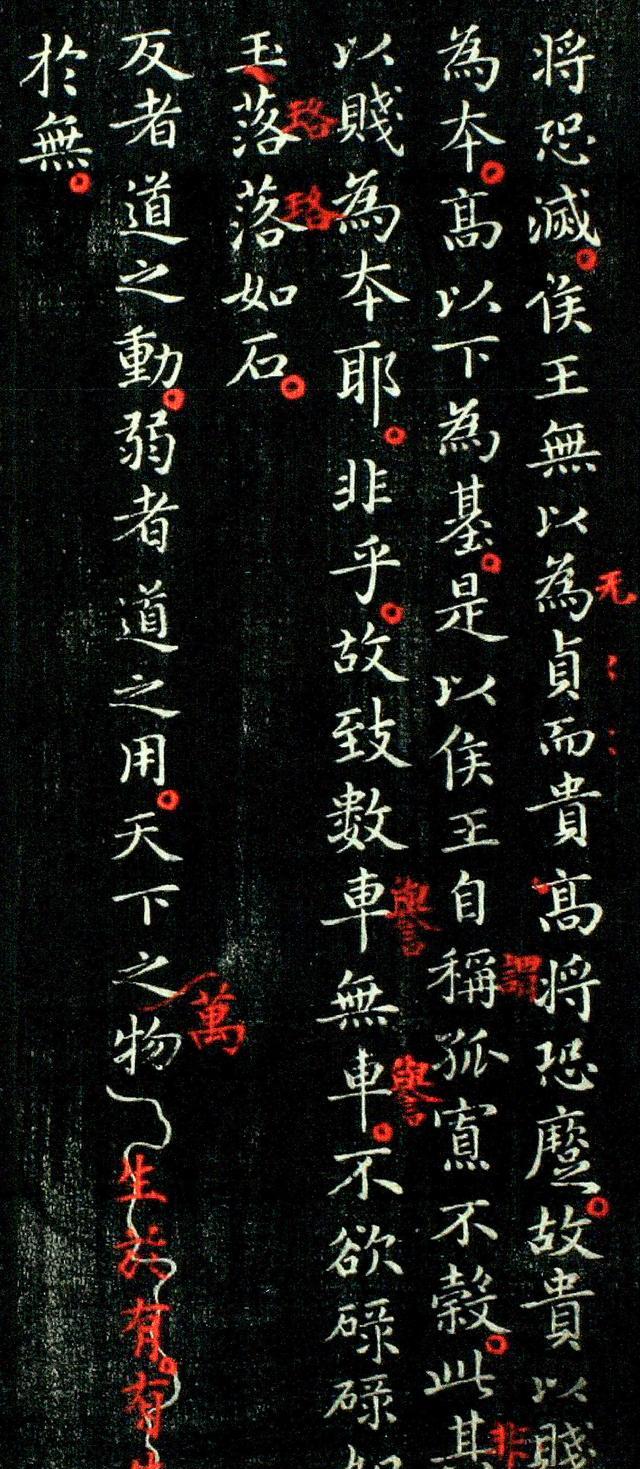 将恐滅。侯王無以為貞而貴高将恐蹷。故貴以賤
无
為本。高以下為基。是以侯王自稱孤寡不穀。此其
謂
非
以賤為本耶。非乎。故致数車無車。不欲碌碌如
譽
譽
玉落落如石。
珞
珞
反者道之動。弱者道之用。天下之物生於有。有生
萬
於無。